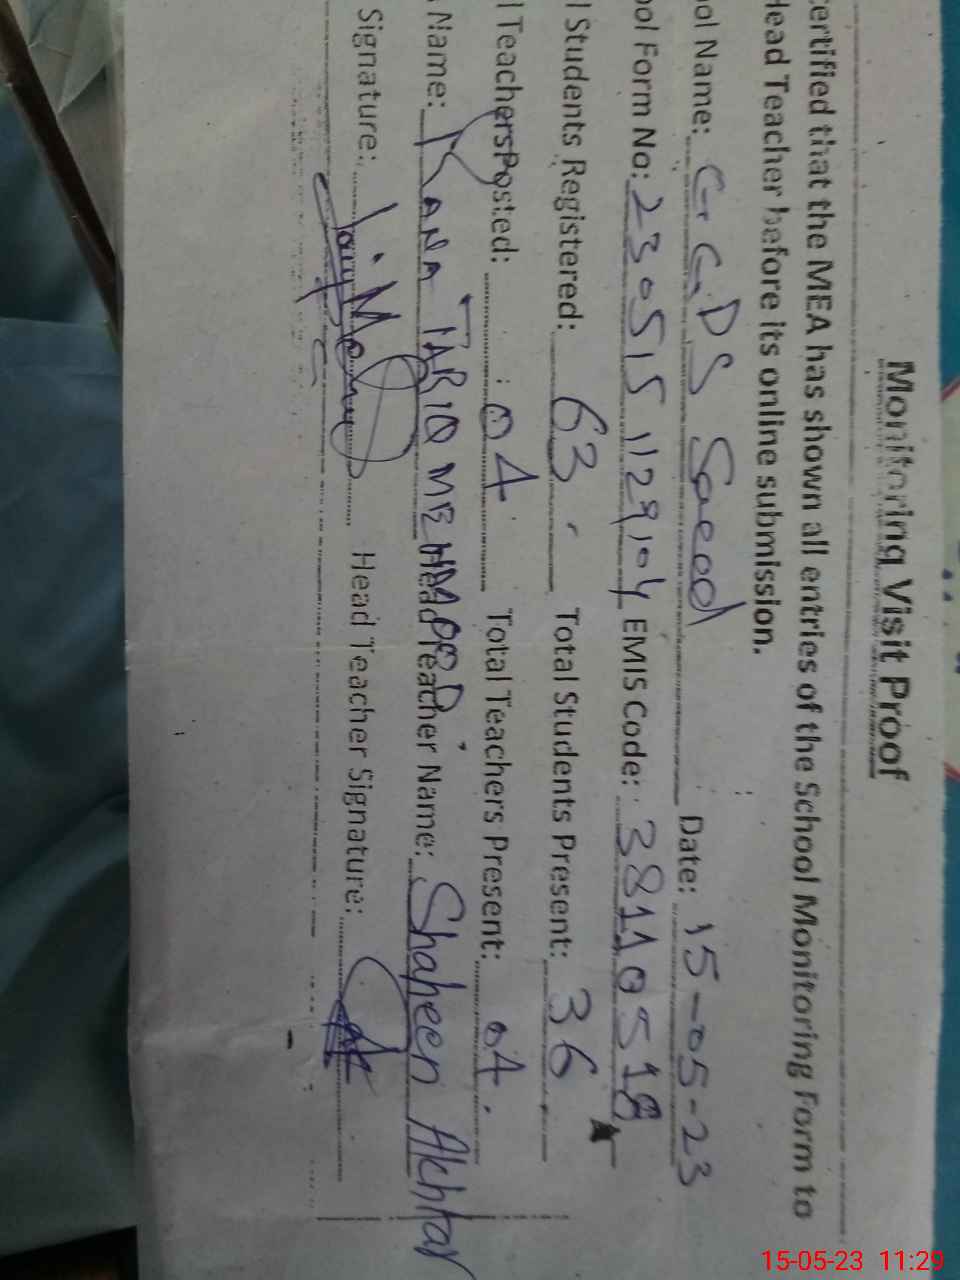 Monitoring Visit Proof
ertified that the MEA has shown all entries of the School Monitoring Form to
Head Teacher before its online submission.
ool Name: GGPS Saeed Date: 15-05-23
ool Form No: 2305151129104 EMIS Code: 38110518
l Students Registered: 63 Total Students Present: 36
l Teachers Posted: 04 Total Teachers Present: 04
Name: RANA TARIQ MEHMOOD Head Teacher Name: Shaheen Akhtar
Signature: Head Teacher Signature:
15-05-23 11:29